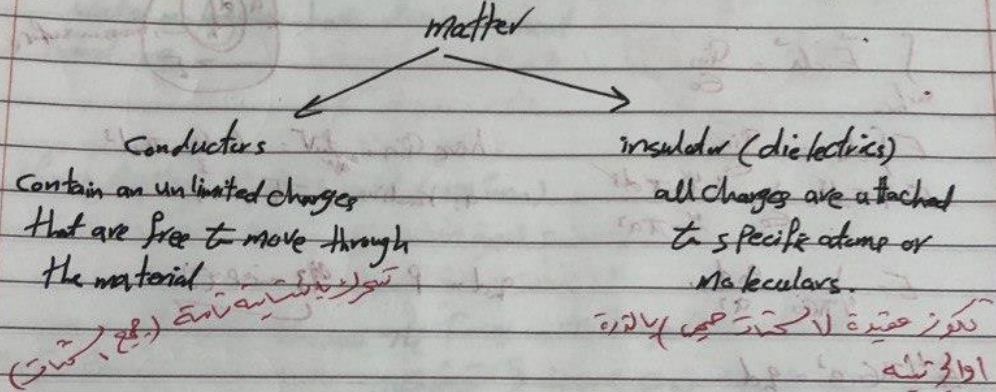 matter
Conductors
Contain an unlimited charges
that are free to move through
the material
تتحرك بانسيابية تامة (جميع الشحنات)
insulator (dielectrics)
all charges are attached
to specific atoms or
Moleculars.
تكون مقيدة الشحنات بالذرة